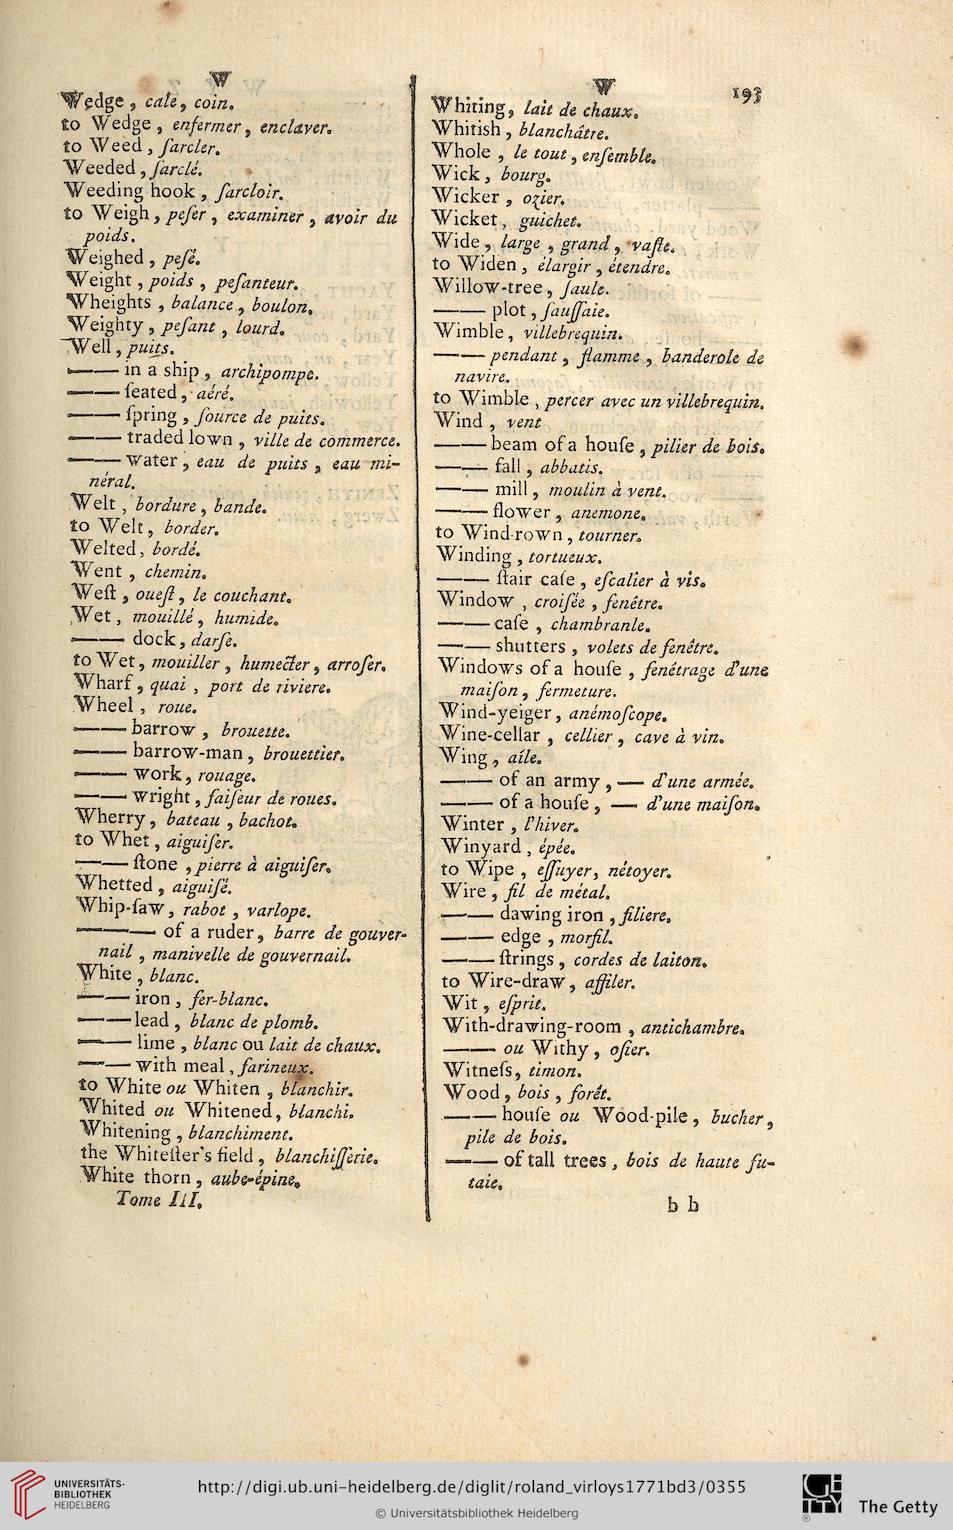 W
Wedge, cale, coin.
to Wedge, enfermer, enclaver.
to Weed, ſarcler.
Weeded, ſarclé.
Weeding hook, ſarcloir.
to Weigh, peſer, examiner, avoir du
poids.
Weighed, peſé.
Weight, poids, peſanteur.
Wheights, balance, boulon.
Weighty, peſant, lourd.
Well, puits.
—— in a ship, archipompe.
—— ſeated, aéré.
—— ſpring, ſource de puits.
—— traded lown, ville de commerce.
—— water, eau de puits, eau mi-
néral.
Welt, bordure, bande.
to Welt, border.
Welted, bordé.
Went, chemin.
Weſt, oueſt, le couchant.
Wet, mouillé, humide.
—— dock, darſe.
to Wet, mouiller, humecter, arroſer.
Wharf, quai, port de riviere.
Wheel, roue.
—— barrow, brouette.
—— barrow-man, brouettier.
—— work, rouage.
—— wright, faiſeur de roues.
Wherry, bateau, bachot.
to Whet, aiguiſer.
—— ſtone, pierre à aiguiſer.
Whetted, aiguiſé.
Whip-ſaw, rabot, varlope.
——— of a ruder, barre de gouver-
nail, manivelle de gouvernail.
White, blanc.
—— iron, fer-blanc.
—— lead, blanc de plomb.
—— lime, blanc ou lait de chaux.
—— with meal, farineux.
to White ou Whiten, blanchir.
Whited ou Whitened, blanchi.
Whitening, blanchiment.
the Whiteſter's field, blanchiſſerie.
White thorn, aube-épine.
Tome III.
W 193
Whiting, lait de chaux.
Whitish, blanchâtre.
Whole, le tout, enſemble.
Wick, bourg.
Wicker, ozier.
Wicket, guichet.
Wide, large, grand, vaſte.
to Widen, élargir, étendre.
Willow-tree, ſaule.
—— plot, ſauſſaie.
Wimble, villebrequin.
—— pendant, flamme, banderole de
navire.
to Wimble, percer avec un villebrequin.
Wind, vent
—— beam of a houſe, pilier de bois.
—— fall, abbatis.
—— mill, moulin à vent.
—— flower, anemone.
to Wind-rown, tourner.
Winding, tortueux.
—— ſtair caſe, eſcalier à vis.
Window, croiſée, fenêtre.
—— caſe, chambranle.
—— shutters, volets de fenêtre.
Windows of a houſe, fenêtrage d'une
maiſon, fermeture.
Wind-yeiger, anémoſcope.
Wine-cellar, cellier, cave à vin.
Wing, aîle.
—— of an army, — d'une armée.
—— of a houſe, — d'une maiſon.
Winter, l'hiver.
Winyard, épée.
to Wipe, eſſuyer, nétoyer.
Wire, fil de métal.
—— dawing iron, filiere.
—— edge, morfil.
—— ſtrings, cordes de laiton.
to Wire-draw, affiler.
Wit, eſprit.
With-drawing-room, antichambre.
—— ou Withy, oſier.
Witneſs, timon.
Wood, bois, forêt.
—— houſe ou Wood-pile, bucher,
pile de bois.
—— of tall trees, bois de haute fu-
taie.
b b
UNIVERSITÄTS-
BIBLIOTHEK
HEIDELBERG
http://digi.ub.uni-heidelberg.de/diglit/roland_virloys1771bd3/0355
© Universitätsbibliothek Heidelberg
GETTY
®
The Getty